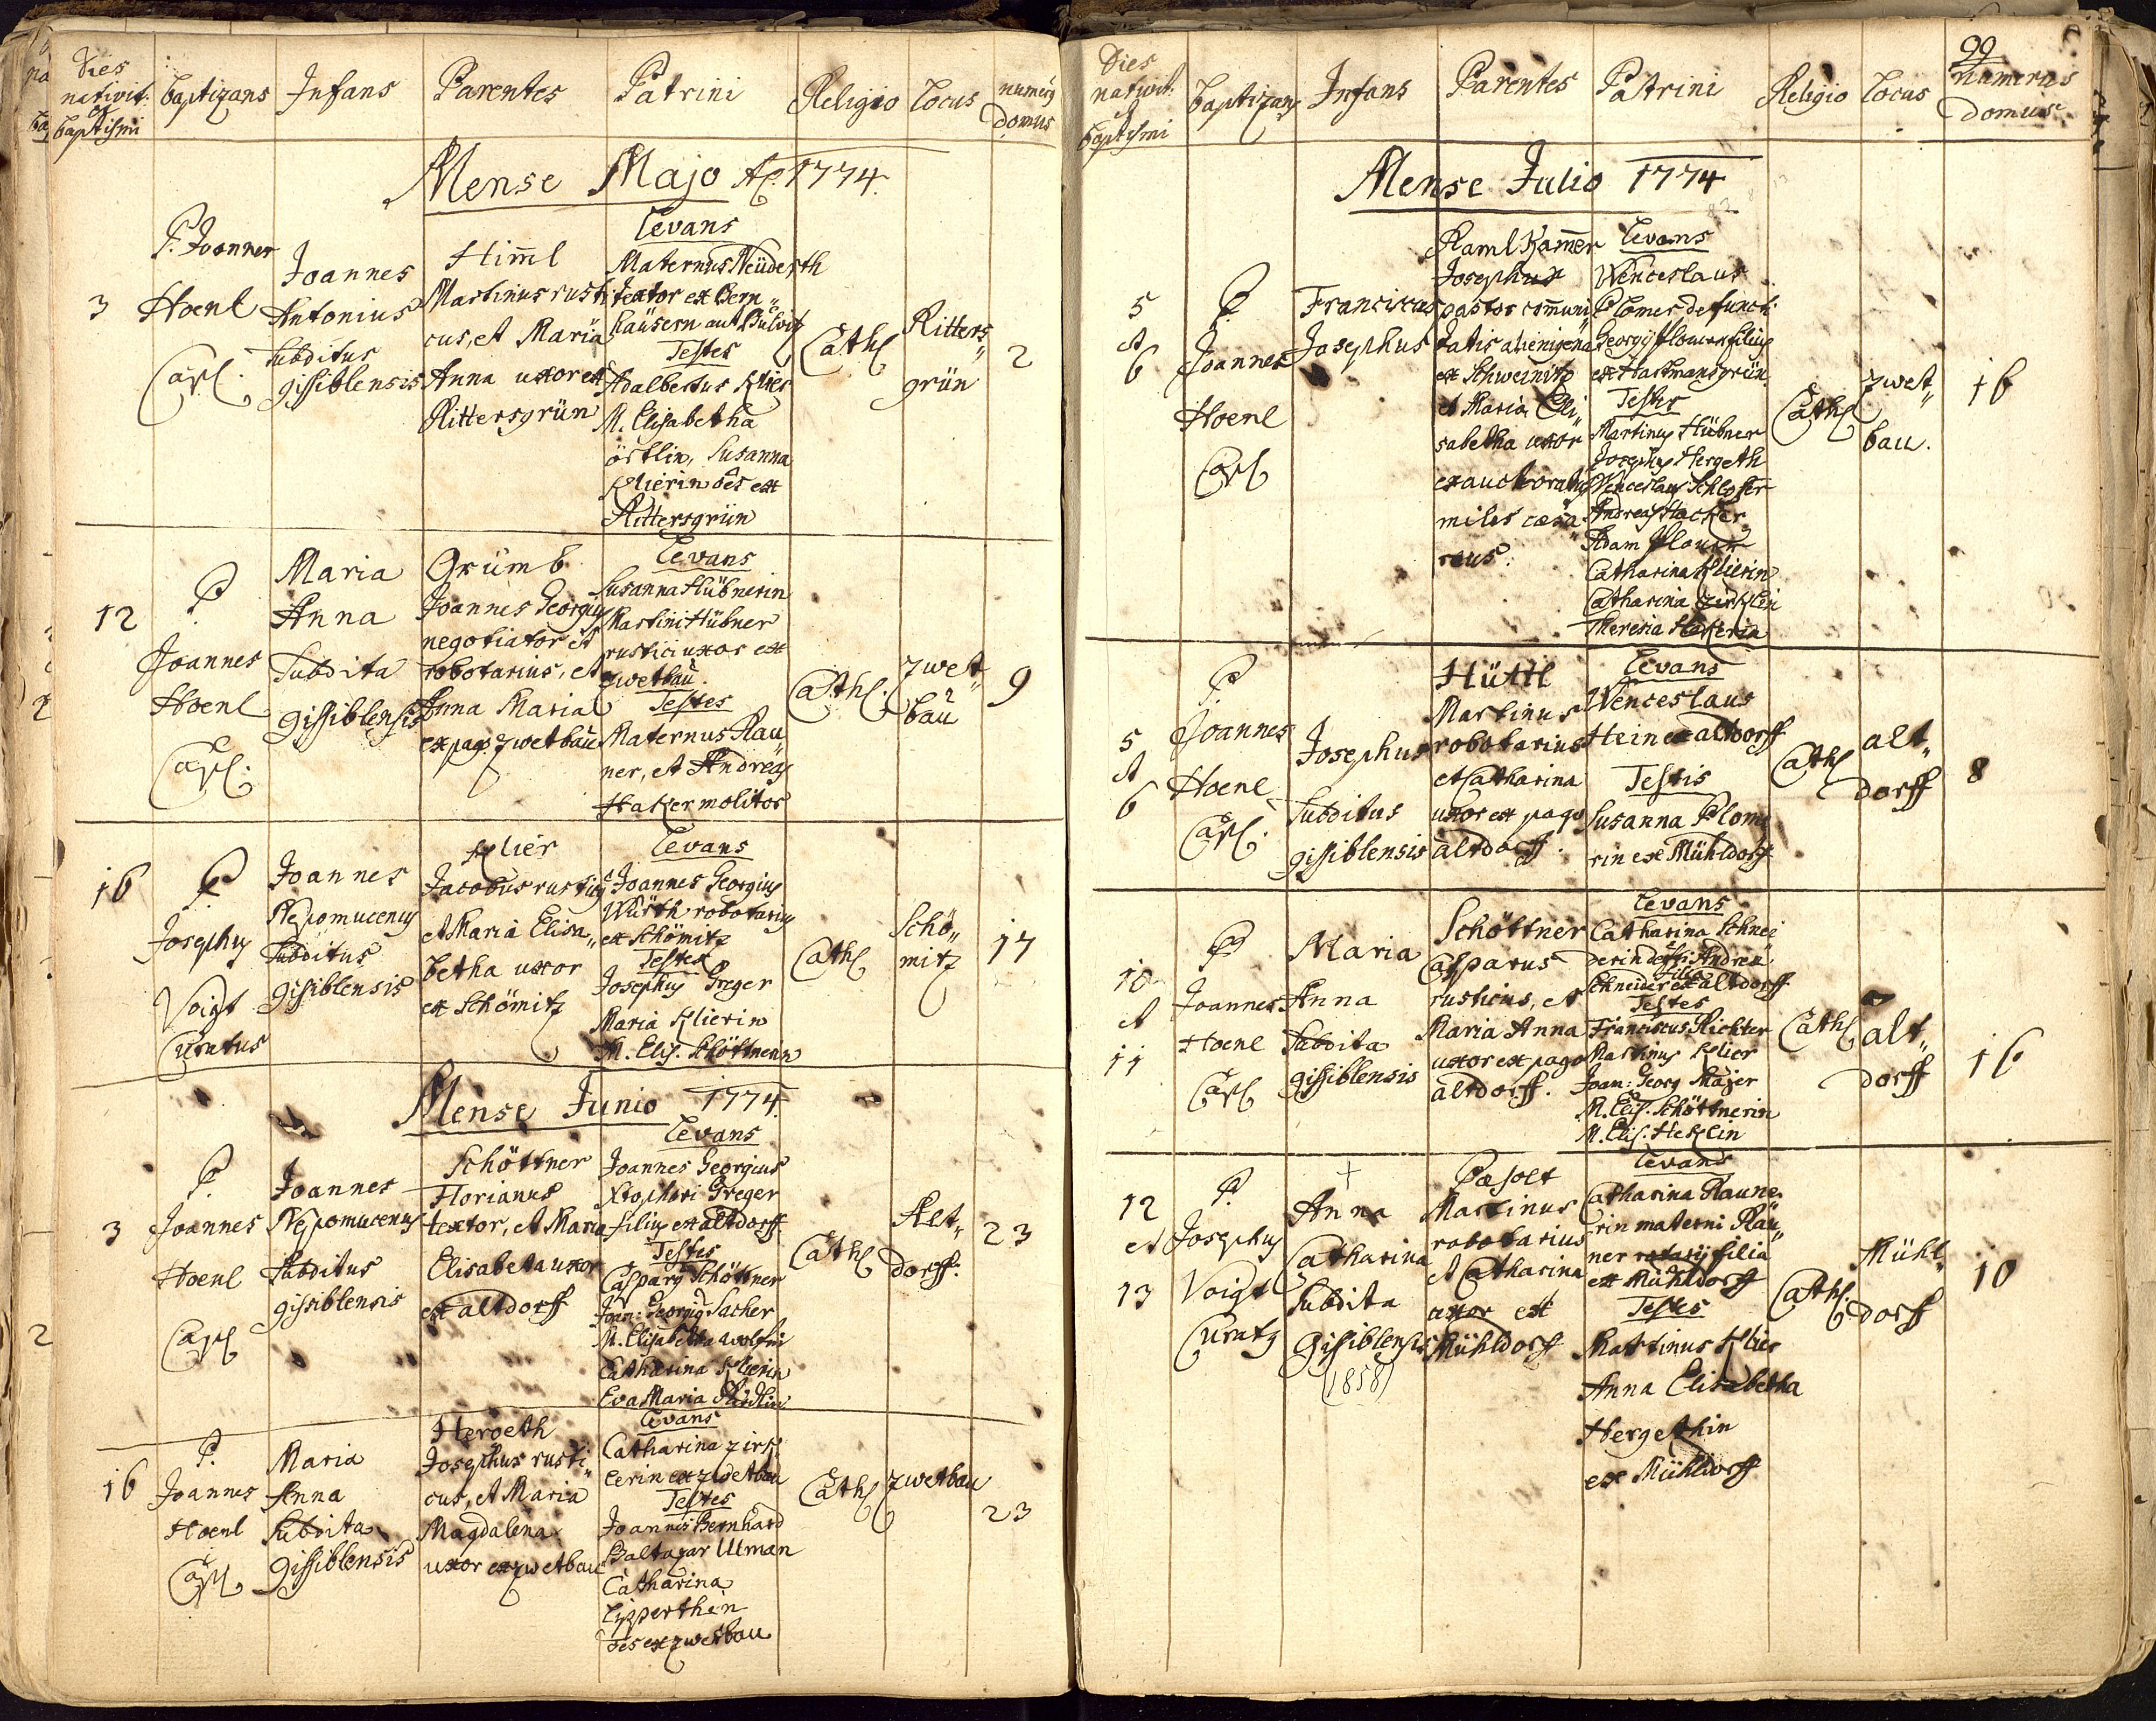 Dies
nativit:
et
baptismi
baptizans
Infans
Parentes
Patrini
Religio
Locus
numerus
Domus
Mense Majo Ao. 1774.
3
P. Joannes
Hoenl
Capl.
Joannes
Antonius
Subditus
gissiblensis
Himl
Martinus rusti
cus, et Maria
Anna uxor ex
Rittersgrün
Levans
Maternus Neüderth
textor ex Bern„
haüsern
Testes
Adalbertus Klier
M. Elisabetha
östlin, Susanna
Klierin oēs ex
Rittersgrün
Cath
Ritters„
grün
2
12
P
Joannes
Hoenl
Capl.
Maria
Anna
Subdita
gissiblensis
Grümb
Joannes Georgius
negotiator et
robotarius, et
Anna Maria
ex pago zwetbau
Levans
Susanna Hübnerin
Martini Hübner
rustici uxor ex
zwetbau.
Testes
Maternus Rau„
ner, et Andreas
Haker molitor
Cath.
zwet„
bau
9
16
P
Josephus
Voigt
Curatus
Joannes
Nepomucenus
Subditus
gissiblensis
Klier
Jacobus rusticus
et Maria Elisa„
betha uxor
ex Schömitz
Levans
Joannes Georgius
Würth robotarius
ex Schömitz
Testes
Josephus Greger
Maria Klierin
M. Elis. Schöttnerin
Cath
Schö„
mitz
17
Mense Junio 1774.
3
P.
Joannes
Hoenl
Capl
Joannes
Nepomucenus
Subditus
gissiblensis
Schöttner
Florianus
textor, et Maria
Elisabeta uxor
ex altdorff
Levans
Joannes Georgius
Xtophori Greger
filius ex altdorff
Testes
Casparus Schöttner
Joan: Georgius Sacher
M. Elisabetha Wolfin
Catharina Klierin
Eva Maria
Cath
Alt„
dorff.
23
16
P.
Joannes
Hoenl
Capl
Maria
Anna
Subdita
gissiblensis
Hergeth
Josephus rusti„
cus, et Maria
Magdalena
uxor ex zwetbau
Levans
Catharina zirk
lerin ex zwetbau
Testes
Joannes Bernhard
Baltazar Ulman
Catharina
Lipperthin
oēs ex zwetbau
Cath
zwetbau
23
99
Dies
nativit:
et
baptismi
baptizans
Infans
Parentes
Patrini
Religio
Locus
numerus
domus
Mense Julio 1774
5
et
6
P
Joannes
Hoenl
Capl
Franciscus
Josephus
Ramlkamer
Josephus
pastor comuni„
tatis alienigena
ex Schweinitz
et Maria Eli„
sabetha uxor
exauctoratus
miles cæsa„
reus.
Levans
Wenceslaus
Plomer defuncti
Georgij Plomer filius
ex Hartmansgrün
Testes
Martinus Hübner
Josephus Hergeth
Wenceslaus Schlosser
Andreas Hacker
Adam Plomer
Catharina Klierin
Catharina zirklin
Theresia Hakerin
Cath
zwet„
bau.
16
5
et
6
P
Joannes
Hoenl
Capl.
Josephus
Subditus
gissiblensis
Hüttl
Martinus
robotarius
et Catharina
uxor ex pago
altdorff.
Levans
Wenceslaus
Hein ex altdorff
Testis
Susanna Plome
rin ex Mühldorf
Cath
alt„
dorff
8
10
et
11
P
Joannes
Hoenl
Capl
Maria
Anna
Subdita
gissiblensis
Schöttner
Casparus
rusticus, et
Maria Anna
uxor ex pago
altdorff.
Levans
Catharina Schnei
derin defti Andreæ
Schneider filia ex altdorff
Testes
Franciscus Richter
Martinus Klier
Joan: Georg Majer
M. Elis. Schöttnerin
M. Elis. Heklin
Cath
alt„
dorff
16
12
et
13
P.
Josephus
Voigt
Curatus
+
Anna
Catharina
Subdita
Gissiblensis
(1858)
Pæsolt
Martinus
robotarius
et Catharina
uxor ex
Mühldorff
Levans
Catharina Raune
rin materni Rau„
ner rotarij filia
ex Mühldorff
Testes
Martinus Klier
Anna Elisabetha
Hergethin
ex Mühldorff
Cath.
Mühl„
dorff
10